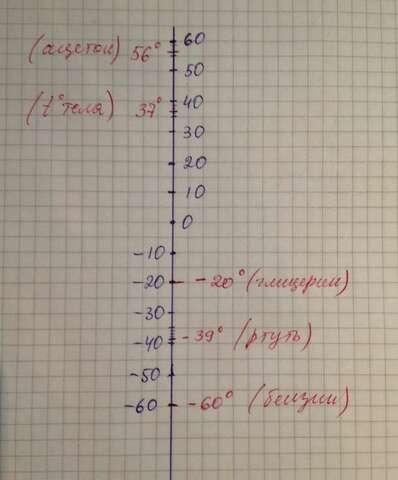 60
(ацетон) 56°
50
40
(t° тела) 37°
30
20
10
0
-10
-20 -20° (глицерин)
-30
-40 -39° (ртуть)
-50
-60 -60° (бензин)